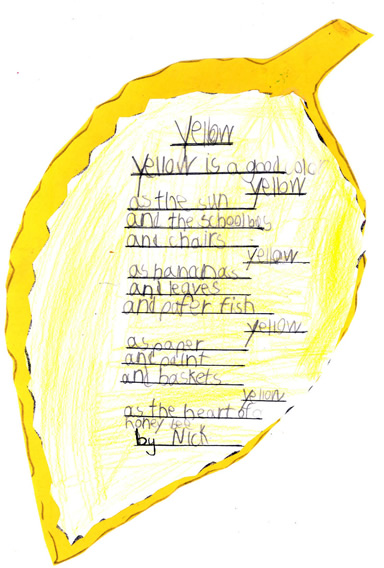 Yellow
Yellow is a good color
Yellow
as the sun
and the schoolbus
and chairs
yellow
as bananas
and leaves
and pufer fish
yellow
as paper
and paint
and baskets
yellow
as the heart of a
honey bee
by Nick